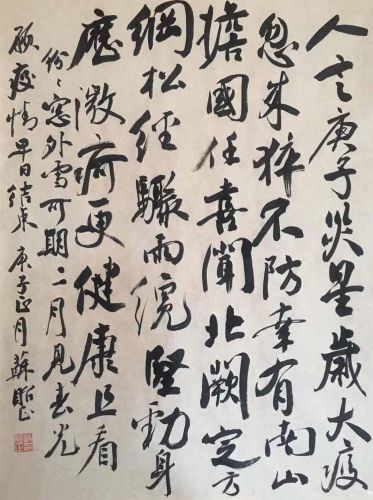 人言庚子災星歲大疫
忽来猝不防幸有南山
擔國任喜聞北闕定方
綱松經驟雨纔堅勁身
歷微疴更健康且看
紛々窓外雪可期二月見春光
願疫情早日結束 庚子正月 蘇